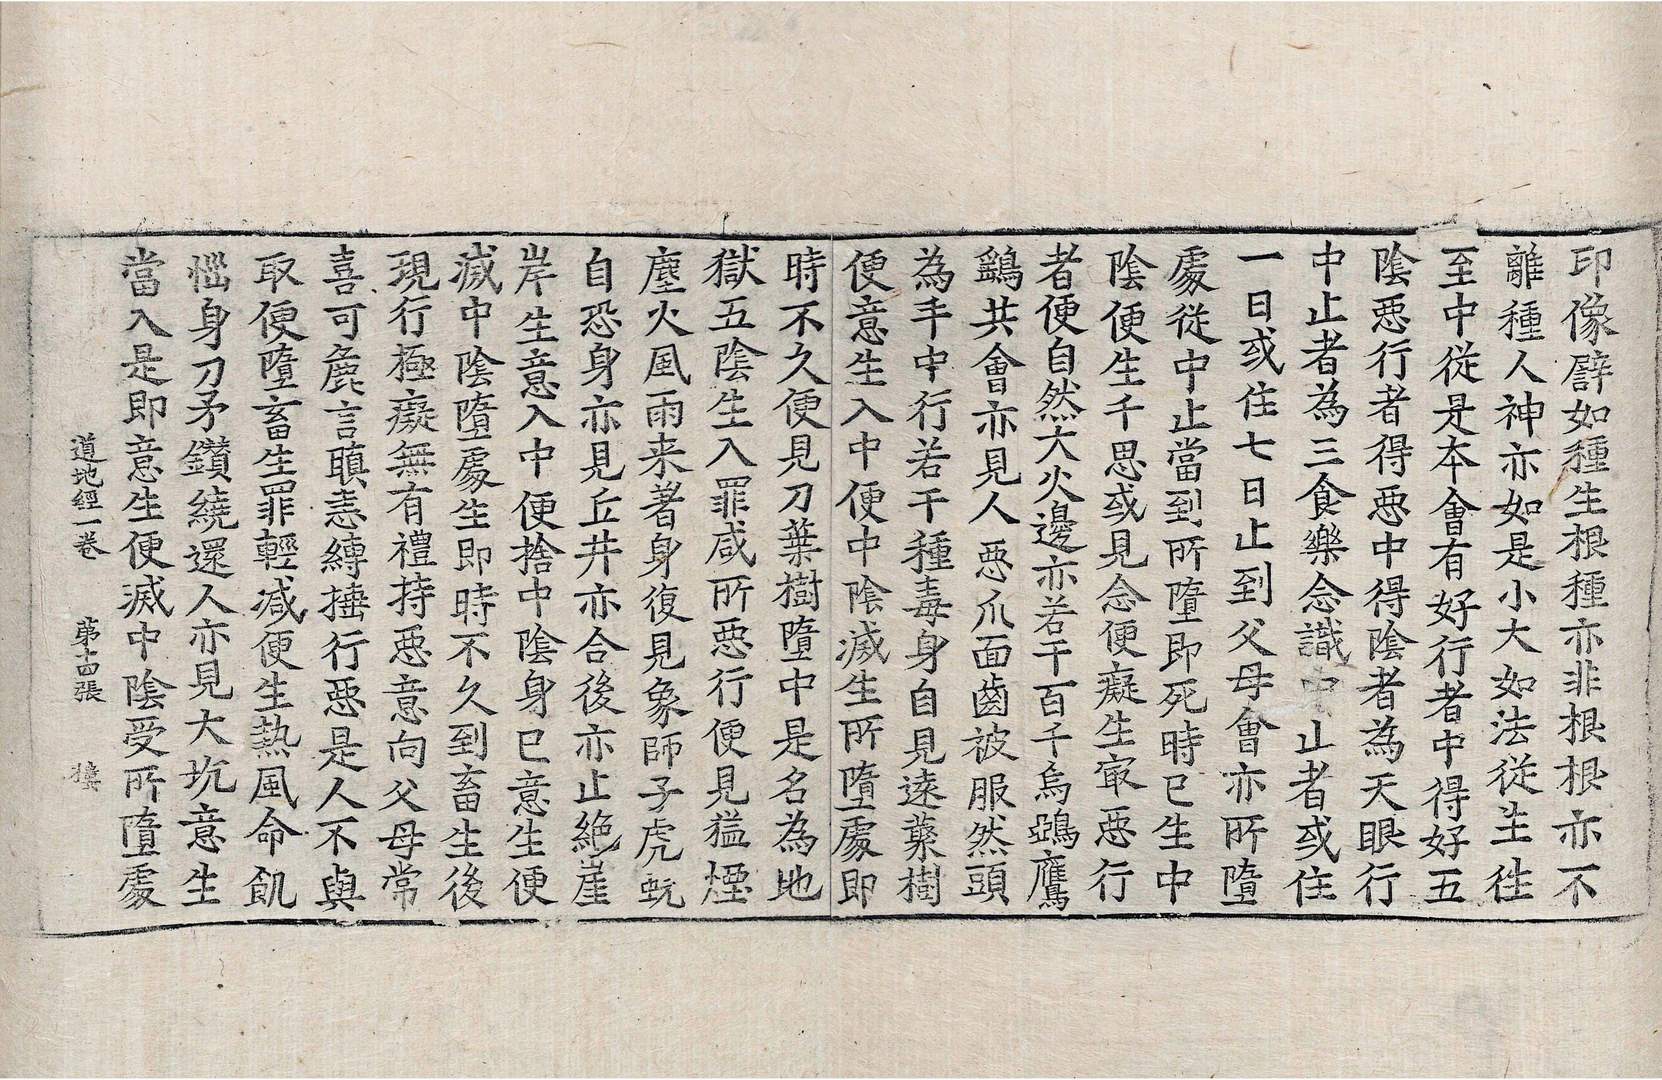 印像譬如種生根種亦非根根亦不
離種人神亦如是小大如法從生往
至中從是本會有好行者中得好五
陰惡行者得惡中得陰者為天眼行
中止者為三食樂念識中止者或住
一日或住七日止到父母會亦所墮
處從中止當到所墮即死時已生中
陰便生千思或見念便癡生㝡惡行
者便自然大火邊亦若干百千烏鵄鷹
鷂共會亦見人惡爪面齒被服然頭
為手中行若干種毒身自見遠藂樹
便意生入中便中陰滅生所墮處即
時不久便見刀葉樹墮中是名為地
獄五陰生入罪咸所惡行便見猛煙
塵火風雨来著身復見象師子虎蚖
自恐身亦見丘井亦合後亦止絶崖
岸生意入中便捨中陰身已意生便
滅中陰墮處生即時不久到畜生後
現行極癡無有禮持惡意向父母常
喜可麁言瞋恚縛捶行惡是人不與
取便墮畜生罪輕減便生熱風命飢
惱身刀矛鑽繞還人亦見大坑意生
當入是即意生便滅中陰受所墮處
道地經一卷 第十四張